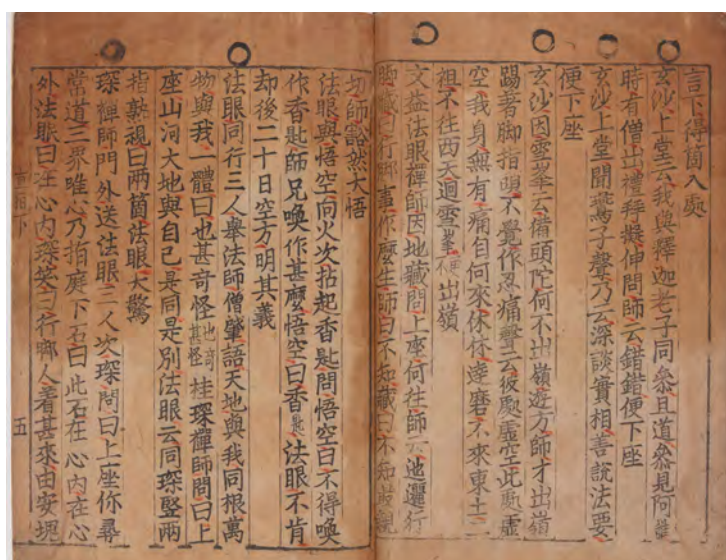 言下得箇入處
玄沙上堂云我與釋迦老子同叅且道叅見阿誰
時有僧出禮拜擬伸問師云錯錯便下座
玄沙上堂聞鷰子聲乃云深談實相善說法要
便下座
玄沙因雪峯云俻頭陀何不出嶺遊方師才出嶺
踢著脚指頭不覺作忍痛聲云彼處虛空此處虛
空我身無有痛自何來休休達磨不來東土二
祖不往西天迴雪峯 出嶺
文益法眼禪師因地藏問上座何往師云迆邐行
脚藏曰行脚事作麽生師曰不知藏曰不知最親
切師豁然大悟
法眼與悟空向火次拈起香匙問悟空曰不得喚
作香匙師兄喚作甚麽悟空曰香匙法眼不肯
却後二十日空方明其義
法眼同行三人舉法師僧肇語天地與我同根萬
物與我一體曰也甚奇怪也奇甚怪桂琛禪師問曰上
座山河大地與自己是同是別法眼云同琛竪兩
指熟視曰兩箇法眼大驚
琛禪師門外送法眼三人次琛問曰上座你尋
常道三界唯心乃指庭下石曰此石在心內在心
外法眼曰在心內琛笑曰行脚人着甚來由安塊
直指下
五